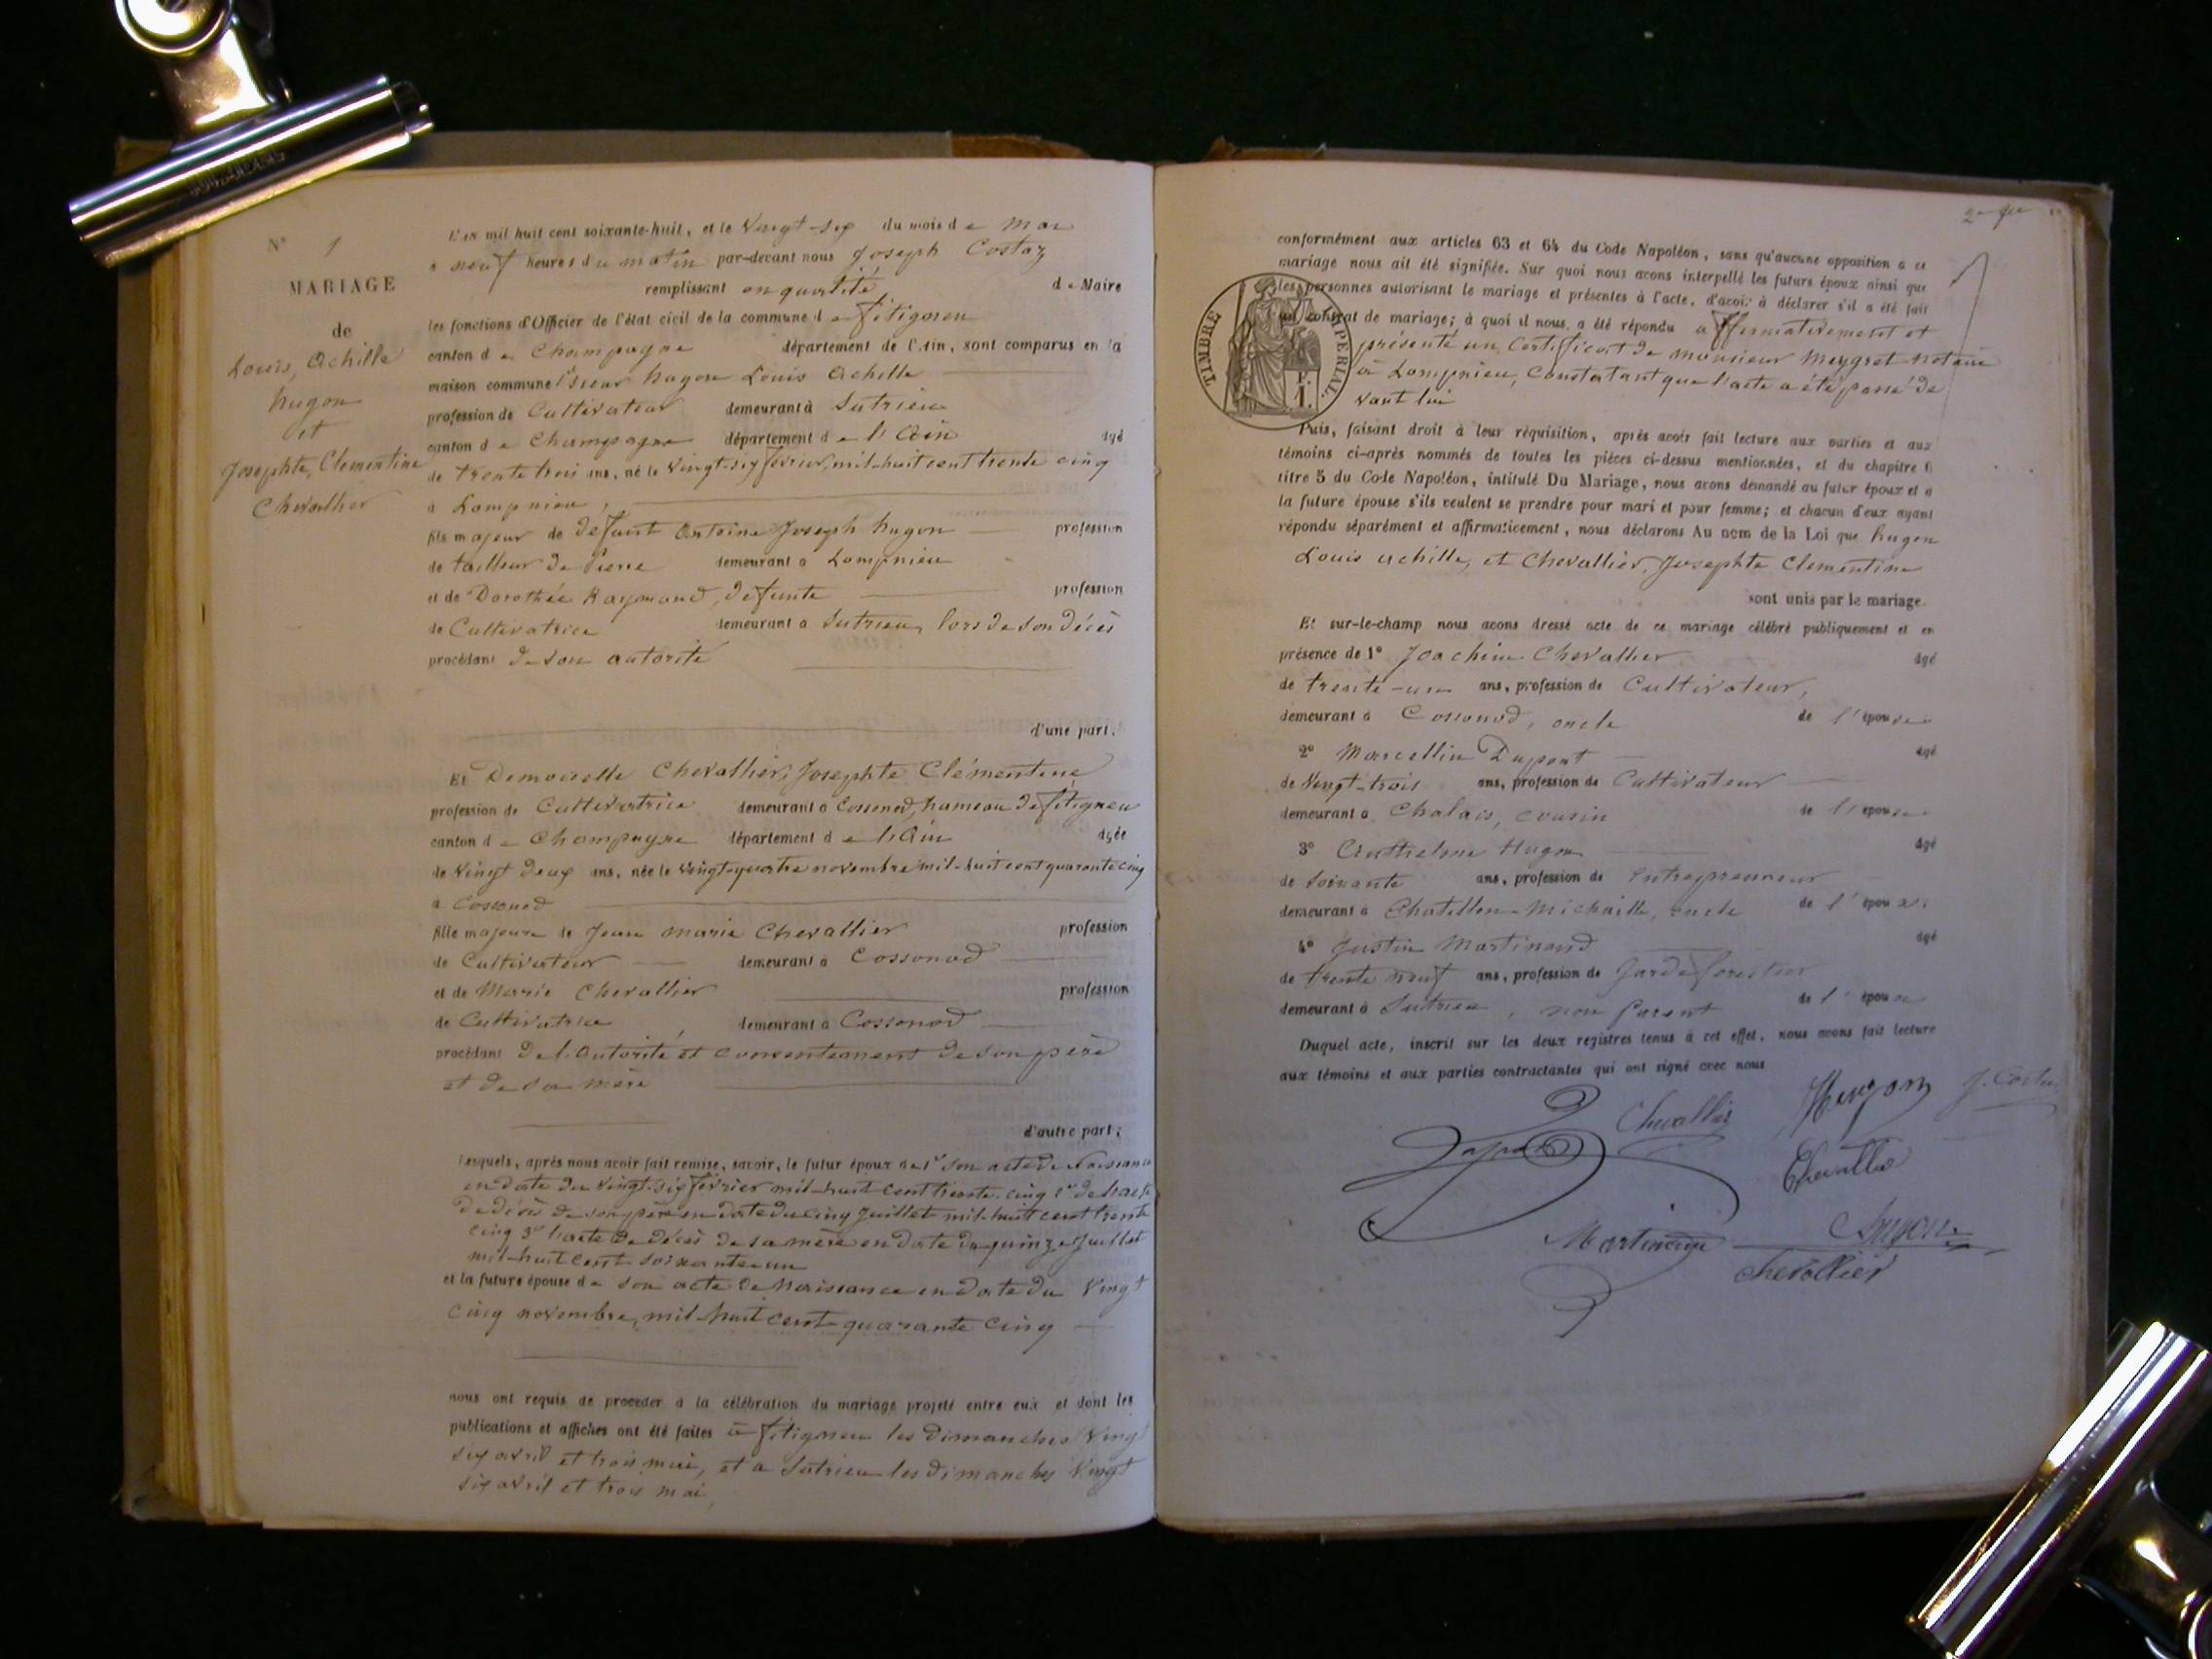 N° 1
MARIAGE
de
Louis, Achille
hugon
et
Josephte, Clementine
Chevallier
L'AN mil huit cent soixante-huit, et le Vingt-six du mois de Mai
a neuf heures du matin par-devant nous Joseph Costaz
remplissant en qualité de Maire
les fonctions d'Officier de l'état civil de la commune de fitignieu
canton de Champagne département de l'Ain, sont comparus en la
maison commune 1° sieur hugon Louis Achille
profession de Cultivateur demeurant à Sutrieu
canton de Champagne département de l'Ain âgé
de trente trois ans, né le Vingt-six février, mil-huit cent trente cinq
à Lompnieu,
fils majeur de defunt Antoine Joseph hugon profession
de tailleur de Pierre demeurant a Lompnieu
et de Dorothée Raymond, defunte profession
de Cultivatrice demeurant a Sutrieu, lors de son décès
procédant de son autorité
d'une part.
Et Demoiselle Chevallier, Josephte Clémentine
profession de Cultivatrice demeurant a Cossonod, hameau de fitignieu
canton de Champagne département de l'Ain âgée
de Vingt deux ans, née le Vingt-quatre novembre mil-huit cent quarante cinq
a Cossonod
fille majeure de Jean marie Chevallier profession
de Cultivateur demeurant à Cossonod
et de Marie Chevallier profession
de Cultivatrice demeurant a Cossonod
procédant de l'autorité et consentement de son père
et de sa mère
d'autre part;
Lesquels, après nous avoir fait remise, savoir, le futur époux de 1° son acte de Naissance
en date du vingt-six février mil-huit cent trente-cinq 2° de l'acte
de décès de son père en date du cinq Juillet mil-huit cent trente
cinq 3° l'acte de décès de sa mère en date du quinze Juillet
mil-huit cent soixante-un
et la future épouse de son acte de Naissance en date du Vingt
cinq novembre, mil-huit cent quarante cinq
nous ont requis de proceder à la célébration du mariage projeté entre eux et dont les
publications et affiches ont été faites à fitignieu les dimanches Vingt
six avril et trois mai, et a Sutrieu les dimanches Vingt
six avril et trois mai,
conformément aux articles 63 et 64 du Code Napoléon, sans qu'aucune opposition a ce
mariage nous ait été signifiée. Sur quoi nous avons interpellé les futurs époux ainsi que
les personnes autorisant le mariage et présentes à l'acte, d'avoir à déclarer s'il a été fait
un contrat de mariage; à quoi il nous a été répondu affirmativement et
présenté un Certificat de Monsieur Meygret notaire
à Lompnieu, Constatant que l'acte a été passé de
vant lui
TIMBRE IMPERIAL.
F.
1.
Puis, faisant droit à leur réquisition, après avoir fait lecture aux parties et aux
témoins ci-après nommés de toutes les pièces ci-dessus mentionnées, et du chapitre 6
titre 5 du Code Napoléon, intitulé Du Mariage, nous avons demandé au futur époux et a
la future épouse s'ils veulent se prendre pour mari et pour femme; et chacun d'eux ayant
répondu séparément et affirmativement, nous déclarons Au nom de la Loi que hugon
Louis achille, et Chevallier, Josephte Clementine
sont unis par le mariage.
Et sur-le-champ nous avons dressé acte de ce mariage célébré publiquement et en
présence de 1° Joachim Chevallier âgé
de trente-un ans, profession de Cultivateur,
demeurant à Cossonod, oncle de l'épouse
2° Marcellin Dupont âgé
de Vingt-trois ans, profession de Cultivateur
demeurant a Chalais, cousin de l'épouse
3° Anthelme Hugon âgé
de Soixante ans, profession de Entrepreneur
demeurant à Chatillon-Michaille, oncle de l'époux.
4° Justin Martinand âgé
de trente neuf ans, profession de Garde forestier
demeurant à Sutrieu, non parent de l'épouse
Duquel acte, inscrit sur les deux registres tenus à cet effet, nous avons fait lecture
aux témoins et aux parties contractantes qui ont signé avec nous
Chevallier Hugon J. Costaz
Dupont Chevallier
Martinand Hugon
Chevallier